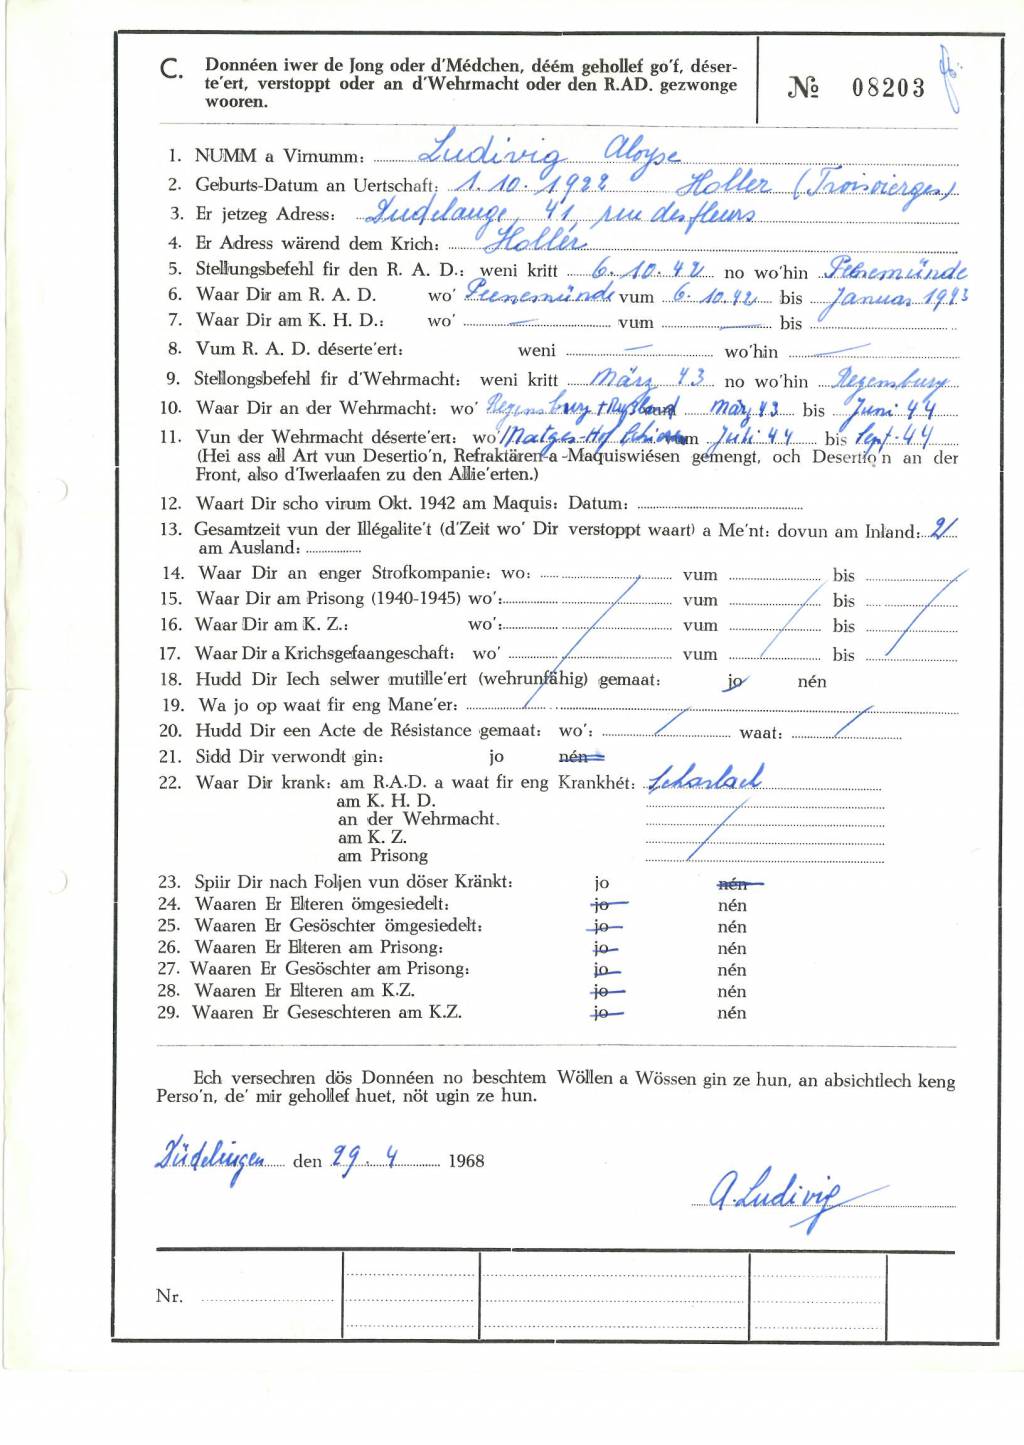 C. Donnéen iwer de Jong oder d'Médchen, déém gehollef go'f, déser-
te'ert, verstoppt oder an d'Wehrmacht oder den R.AD. gezwonge
wooren.
№ 08203
1. NUMM a Virnumm: Ludivig Aloyse
2. Geburts-Datum an Uertschaft: 1.10.1922 Holler (Troisvierges)
3. Er jetzeg Adress: Dudelange, 41, rue des fleurs
4. Er Adress wärend dem Krich: Holler
5. Stellungsbefehl fir den R. A. D.: weni kritt 6.10.42 no wo'hin Peenemünde
6. Waar Dir am R. A. D. wo' Peenemünde vum 6.10.42 bis Januar 1943
7. Waar Dir am K. H. D.: wo' — vum — bis
8. Vum R. A. D. déserte'ert: weni — wo'hin —
9. Stellongsbefehl fir d'Wehrmacht: weni kritt März 43 no wo'hin Regensburg
10. Waar Dir an der Wehrmacht: wo' Regensburg + Rußland März 43 bis Juni 44
11. Vun der Wehrmacht déserte'ert: wo' vum Juli 44 bis Sept. 44
(Hei ass all Art vun Desertio'n, Refraktären-a-Maquiswiésen gemengt, och Desertio'n an der
Front, also d'Iwerlaafen zu den Allie'erten.)
12. Waart Dir scho virum Okt. 1942 am Maquis: Datum:
13. Gesamtzeit vun der Illégalite't (d'Zeit wo' Dir verstoppt waart) a Me'nt: dovun am Inland: 2
am Ausland:
14. Waar Dir an enger Strofkompanie: wo: vum bis
15. Waar Dir am Prisong (1940-1945) wo': vum bis
16. Waar Dir am K. Z.: wo': vum bis
17. Waar Dir a Krichsgefaangeschaft: wo' vum bis
18. Hudd Dir Iech selwer mutille'ert (wehrunfähig) gemaat: jo nén
19. Wa jo op waat fir eng Mane'er:
20. Hudd Dir een Acte de Résistance gemaat: wo': waat:
21. Sidd Dir verwondt gin: jo nén
22. Waar Dir krank: am R.A.D. a waat fir eng Krankhét: Scharlach
am K. H. D.
an der Wehrmacht.
am K. Z.
am Prisong
23. Spiir Dir nach Foljen vun döser Kränkt: jo nén
24. Waaren Er Elteren ömgesiedelt: jo nén
25. Waaren Er Gesöschter ömgesiedelt: jo nén
26. Waaren Er Elteren am Prisong: jo nén
27. Waaren Er Gesöschter am Prisong: jo nén
28. Waaren Er Elteren am K.Z. jo nén
29. Waaren Er Geseschteren am K.Z. jo nén
Ech versechren dös Donnéen no beschtem Wöllen a Wössen gin ze hun, an absichtlech keng
Perso'n, de' mir gehollef huet, nöt ugin ze hun.
Düdelingen den 29. 4 1968
A. Ludivig
Nr.